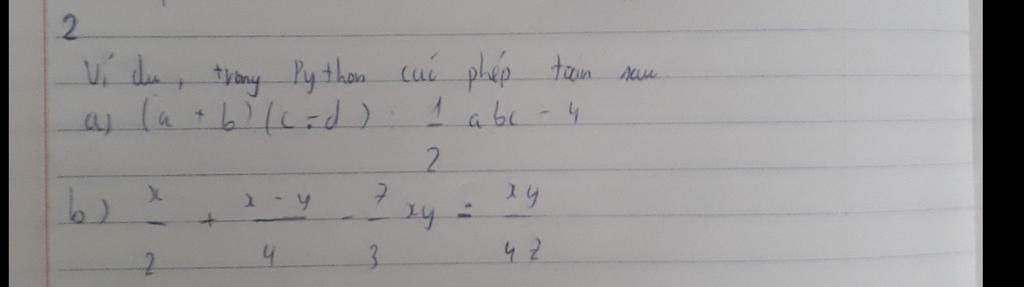 2
Ví du, trong Python cái phép toán sau
a) (a + b) (c = d) : 1/2 abc - 4
b) x/2 + x - y/4 - 7/3 xy = xy/4z